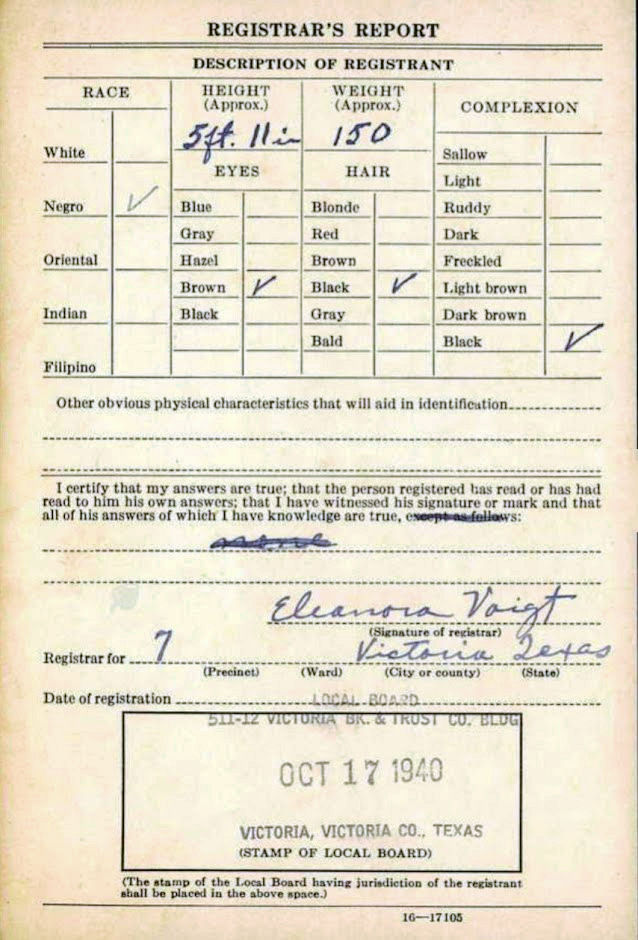 REGISTRAR'S REPORT
DESCRIPTION OF REGISTRANT
RACE
HEIGHT (Approx.)
WEIGHT (Approx.)
COMPLEXION
5 ft. 11 in
150
EYES
HAIR
White
Negro ✓
Oriental
Indian
Filipino
Blue
Gray
Hazel
Brown ✓
Black
Blonde
Red
Brown
Black ✓
Gray
Bald
Sallow
Light
Ruddy
Dark
Freckled
Light brown
Dark brown
Black ✓
Other obvious physical characteristics that will aid in identification
I certify that my answers are true; that the person registered has read or has had
read to him his own answers; that I have witnessed his signature or mark and that
all of his answers of which I have knowledge are true, except as follows:
none
Eleanora Voigt
(Signature of registrar)
Registrar for 7 Victoria Texas
(Precinct) (Ward) (City or county) (State)
Date of registration
LOCAL BOARD
511-12 VICTORIA BK. & TRUST CO. BLDG
OCT 17 1940
VICTORIA, VICTORIA CO., TEXAS
(STAMP OF LOCAL BOARD)
(The stamp of the Local Board having jurisdiction of the registrant
shall be placed in the above space.)
16—17105